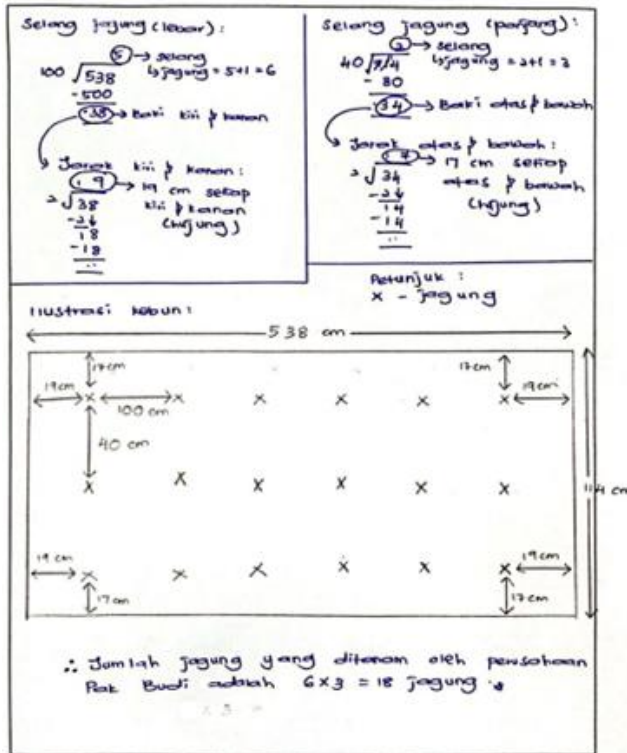 Selang jagung (lebar) :
5 → selang
↳ jagung = 5+1 = 6
100 √538
-500
38 → Baki kiri & kanan
Jarak kiri & kanan :
19 → 19 cm setiap
kiri & kanan
(hujung)
2 √38
-2↓
18
-18
Selang jagung (panjang) :
2 → selang
↳ jagung = 2+1 = 3
40 √114
- 80
34 → Baki atas & bawah
Jarak atas & bawah :
17 → 17 cm setiap
atas & bawah
(hujung)
2 √34
-2↓
14
-14
Petunjuk :
x - jagung
Ilustrasi kebun :
538 cm
17cm 17cm
19cm 19cm
x x x x x x
100 cm
40 cm
x x x x x x
114 cm
19 cm 19cm
x x x x x x
17cm 17cm
∴ Jumlah jagung yang ditanam oleh perusahaan
Pak Budi adalah 6 x 3 = 18 jagung